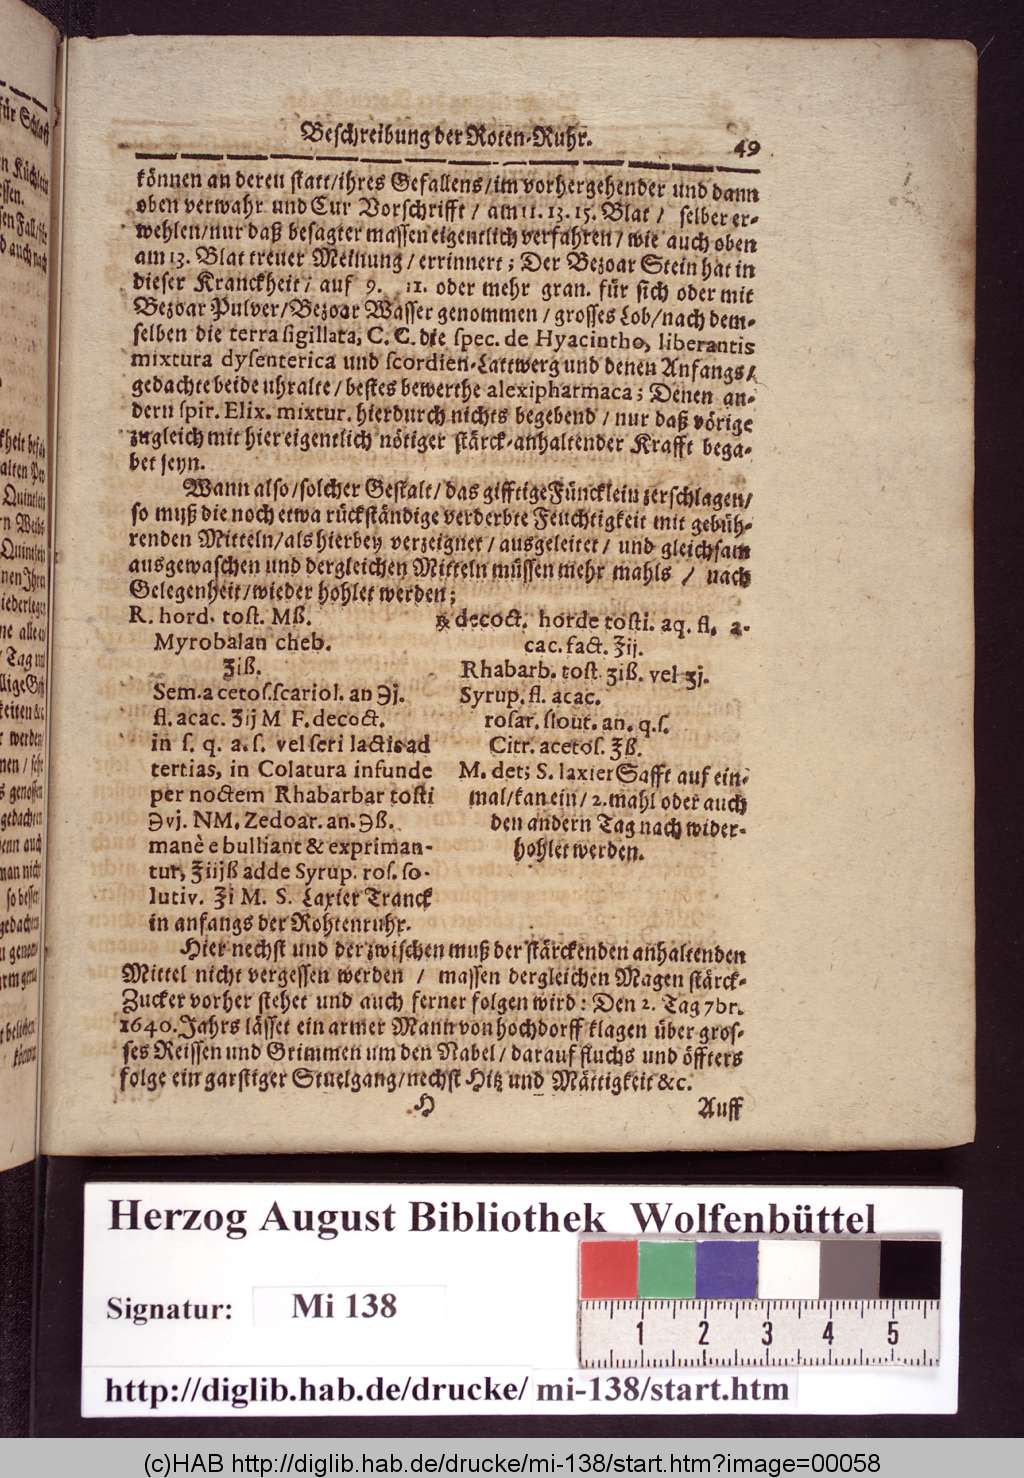 Beschreibung der Roten-Ruhr. 49
können an deren statt/ihres Gefallens/im vorhergehender und dann
oben verwahr und Cur Vorschrifft / am 11. 13. 15. Blat / selber er-
wehlen/nur daß besagter massen eigentlich verfahren/ wie auch oben
am 13. Blat treuer Meinung/errinnert; Der Bezoar Stein hat in
dieser Kranckheit/ auf 9. 11. oder mehr gran. für sich oder mit
Bezoar Pulver/Bezoar Wasser genommen/grosses Lob/nach dem-
selben die terra sigillata, C. C. die spec. de Hyacintho, liberantis
mixtura dysenterica und scordien-Lattwerg und denen Anfangs/
gedachte beide uhralte/bestes bewerthe alexipharmaca; Denen an-
dern spir. Elix. mixtur. hierdurch nichts begebend/nur daß vörige
zugleich mit hier eigentlich nötiger stärck-anhaltender Krafft bega-
bet seyn.
Wann also/solcher Gestalt/das gifftige Füncklein zerschlagen/
so muß die noch etwa rückständige verderbte Feuchtigkeit mit gebüh-
renden Mitteln/als hierbey verzeignet/ausgeleitet/ und gleichsam
ausgewaschen und dergleichen Mitteln müssen mehr mahls / nach
Gelegenheit/wieder hohlet werden;
R. hord. tost. Mß.
Myrobalan cheb.
ʒiß.
Sem. acetos. scariol. an ℈j.
fl. acac. ℥ij M F. decoct.
in s. q. a. s. vel seri lactis ad
tertias, in Colatura infunde
per noctem Rhabarbar tosti
℈vj. NM. Zedoar. an. ℈ß.
manè ebulliant & expriman-
tur, ℥iijß adde Syrup. ros. so-
lutiv. ℥i M. S. Laxier Tranck
in anfangs der Rohtenruhr.
℞ decoct. horde tosti. aq. fl. a-
cac. fact. ℥ij.
Rhabarb. tost ʒiß. vel ʒj.
Syrup. fl. acac.
rosar. slout. an. q. s.
Citr. acetos. ℥ß.
M. det; S. laxier Safft auf ein-
mal/kan ein/2. mahl oder auch
den andern Tag nach wider-
hohlet werden.
Hier nechst und der zwischen muß der stärckenden anhaltenden
Mittel nicht vergessen werden / massen dergleichen Magen stärck-
Zucker vorher stehet und auch ferner folgen wird: Den 2. Tag 7br.
1640. Jahrs lässet ein armer Mann von hochdorff klagen über gros-
ses Reissen und Grimmen um den Nabel/darauf fluchs und öffters
folge ein garstiger Stuelgang/nechst Hitz und Mättigkeit &c.
H Auff
Herzog August Bibliothek Wolfenbüttel
Signatur: Mi 138
1 2 3 4 5
http://diglib.hab.de/drucke/ mi-138/start.htm
(c)HAB http://diglib.hab.de/drucke/mi-138/start.htm?image=00058